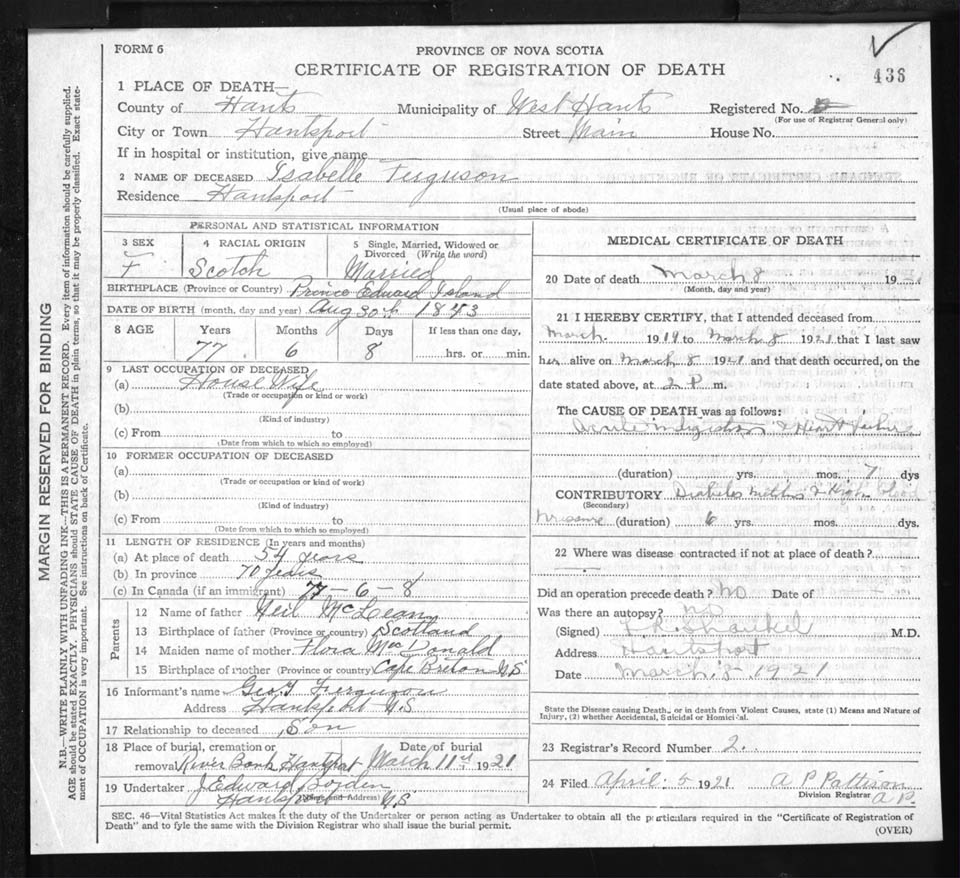 FORM 6
PROVINCE OF NOVA SCOTIA
CERTIFICATE OF REGISTRATION OF DEATH
436
1 PLACE OF DEATH—
County of Hants Municipality of West Hants Registered No.
(For use of Registrar General only)
City or Town Hantsport Street Main House No.
If in hospital or institution, give name
2 NAME OF DECEASED Isabelle Furguson
Residence Hantsport
(Usual place of abode)
PERSONAL AND STATISTICAL INFORMATION
3 SEX 4 RACIAL ORIGIN 5 Single, Married, Widowed or Divorced (Write the word)
F Scotch Married
BIRTHPLACE (Province or Country) Prince Edward Island
DATE OF BIRTH (month, day and year) Aug 30th 1843
8 AGE Years Months Days If less than one day,
77 6 8 hrs. or min.
9 LAST OCCUPATION OF DECEASED
(a) House Wife
(Trade or occupation or kind or work)
(b)
(Kind of industry)
(c) From to
(Date from which to which so employed)
10 FORMER OCCUPATION OF DECEASED
(a)
(Trade or occupation or kind of work)
(b)
(Kind of industry)
(c) From to
(Date from which to which so employed)
11 LENGTH OF RESIDENCE (In years and months)
(a) At place of death 54 years
(b) In province 70 years
(c) In Canada (if an immigrant) 77-6-8
Parents
12 Name of father Neil McLean
13 Birthplace of father (Province or country) Scotland
14 Maiden name of mother Flora MacDonald
15 Birthplace of mother (Province or country) Cape Breton N.S
16 Informant's name Geo. Furguson
Address Hantsport N.S
17 Relationship to deceased Son
18 Place of burial, cremation or Date of burial
removal River Bank Hantsport March 11th 1921
19 Undertaker J. Edward Borden
(Name and Address) Hantsport N.S.
MEDICAL CERTIFICATE OF DEATH
20 Date of death March 8 1921
(Month, day and year)
21 I HEREBY CERTIFY, that I attended deceased from
March 1919 to March 8 1921 that I last saw
her alive on March 8 1921 and that death occurred, on the
date stated above, at 2 P m.
The CAUSE OF DEATH was as follows:
Acute indigestion & Heart failure
(duration) yrs. mos. 7 dys
CONTRIBUTORY Diabetes Mellitus & High blood
(Secondary)
pressure (duration) 6 yrs. mos. dys.
22 Where was disease contracted if not at place of death?
Did an operation precede death? No Date of
Was there an autopsy? no
(Signed) Shankel M.D.
Address Hantsport
Date March 1921
State the Disease causing Death, or in death from Violent Causes, state (1) Means and Nature of
Injury, (2) whether Accidental, Suicidal or Homicidal.
23 Registrar's Record Number 2.
24 Filed April 5 1921 A P Pattison
Division Registrar A P.
SEC. 46—Vital Statistics Act makes it the duty of the Undertaker or person acting as Undertaker to obtain all the particulars required in the "Certificate of Registration of
Death" and to fyle the same with the Division Registrar who shall issue the burial permit.
(OVER)
MARGIN RESERVED FOR BINDING
N.B.—WRITE PLAINLY WITH UNFADING INK—THIS IS A PERMANENT RECORD. Every item of information should be carefully supplied.
AGE should be stated EXACTLY. PHYSICIANS should STATE CAUSE OF DEATH in plain terms, so that it may be properly classified. Exact state-
ment of OCCUPATION is very important. See instructions on back of Certificate.